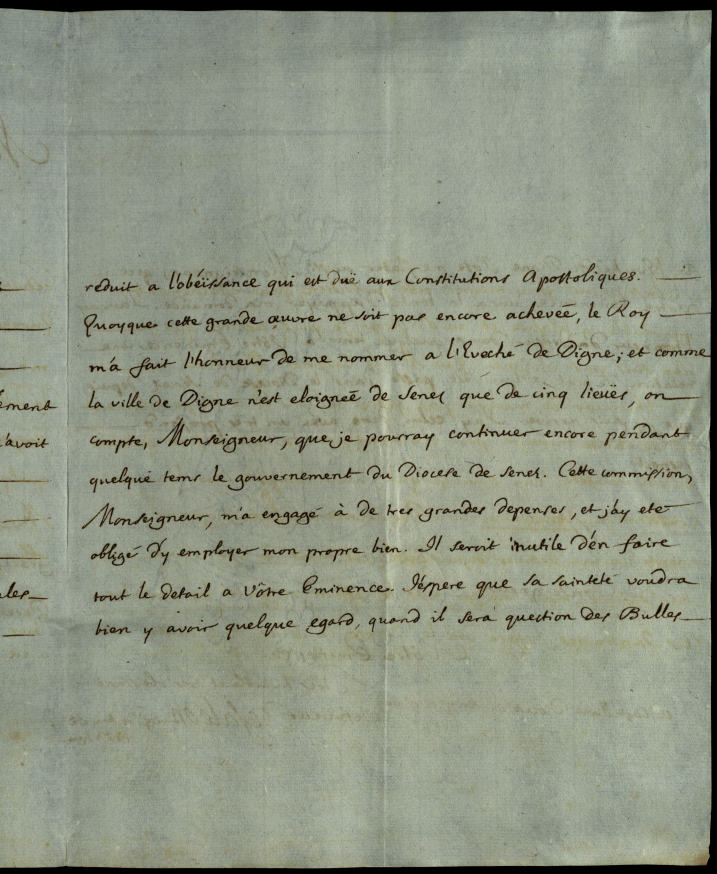 ement
avoit
ales
reduit a l'obéissance qui est duë aux Constitutions Apostoliques.
Quoyque cette grande œuvre ne soit pas encore achevéé, le Roy
m'a fait l'honneur de me nommer a l'Eveché de Digne; et comme
la ville de Digne n'est eloignéé de Senez que de cinq lieuës, on
compte, Monseigneur, que je pourray continuer encore pendant
quelque tems le gouvernement du Diocese de Senez. Cette commission,
Monseigneur, m'a engagé à de tres grandes depenses, et j'ay eté
obligé d'y employer mon propre bien. Il seroit inutile d'en faire
tout le detail a Vôtre Eminence. J'éspere que sa sainteté voudra
bien y avoir quelque egard, quand il sera question des Bulles